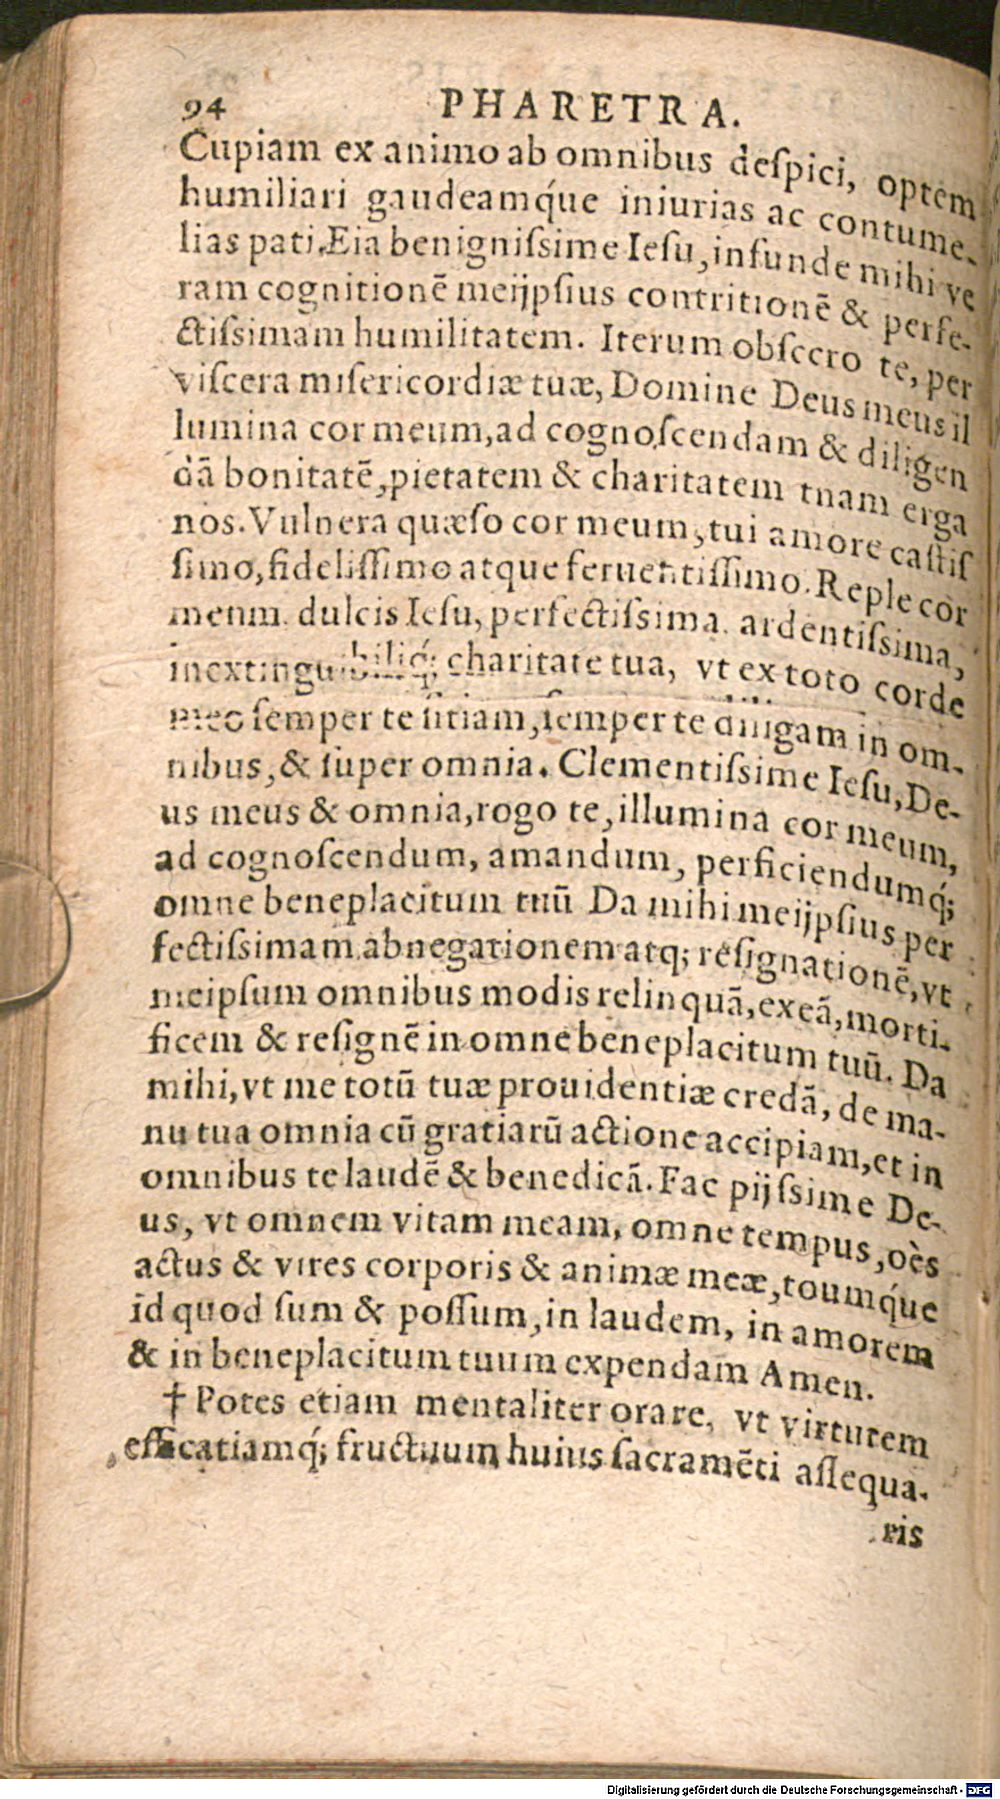 94 PHARETRA.
Cupiam ex animo ab omnibus deſpici, optem
humiliari gaudeamq́ue iniurias ac contume-
lias pati. Eia benigniſsime Ieſu, infunde mihi ve
ram cognitionē meijpſius contritionē & perfe-
ctiſsimam humilitatem. Iterum obſecro te, per
viſcera miſericordiæ tuæ, Domine Deus meus il
lumina cor meum, ad cognoſcendam & diligen
dā bonitatē, pietatem & charitatem tuam erga
nos. Vulnera quæſo cor meum, tui amore caſtiſ
ſimo, fideliſſimo atque feruentiſſimo. Reple cor
meum dulcis Ieſu, perfectiſsima. ardentiſsima,
inextinguibiliq́; charitate tua, vt ex toto corde
meo ſemper te ſitiam, ſemper te diligam in om-
nibus, & ſuper omnia. Clementiſsime Ieſu, De-
us meus & omnia, rogo te, illumina cor meum,
ad cognoſcendum, amandum, perficiendumq́;
omne beneplacitum tuū Da mihi meijpſius per
fectiſsimam abnegationem atq; reſignationē, vt
meipſum omnibus modis relinquā, exeā, morti-
ficem & reſignē in omne beneplacitum tuū. Da
mihi, vt me totū tuæ prouidentiæ credā, de ma-
nu tua omnia cū gratiarū actione accipiam, et in
omnibus te laudē & benedicā. Fac pijſsime De-
us, vt omnem vitam meam, omne tempus, oēs
actus & vires corporis & animæ meæ, toumq́ue
id quod ſum & poſſum, in laudem, in amorem
& in beneplacitum tuum expendam Amen.
† Potes etiam mentaliter orare, vt virtutem
efficatiamq́; fructuum huius ſacramēti aſſequa-
ris
Digitalisierung gefördert durch die Deutsche Forschungsgemeinschaft - DFG